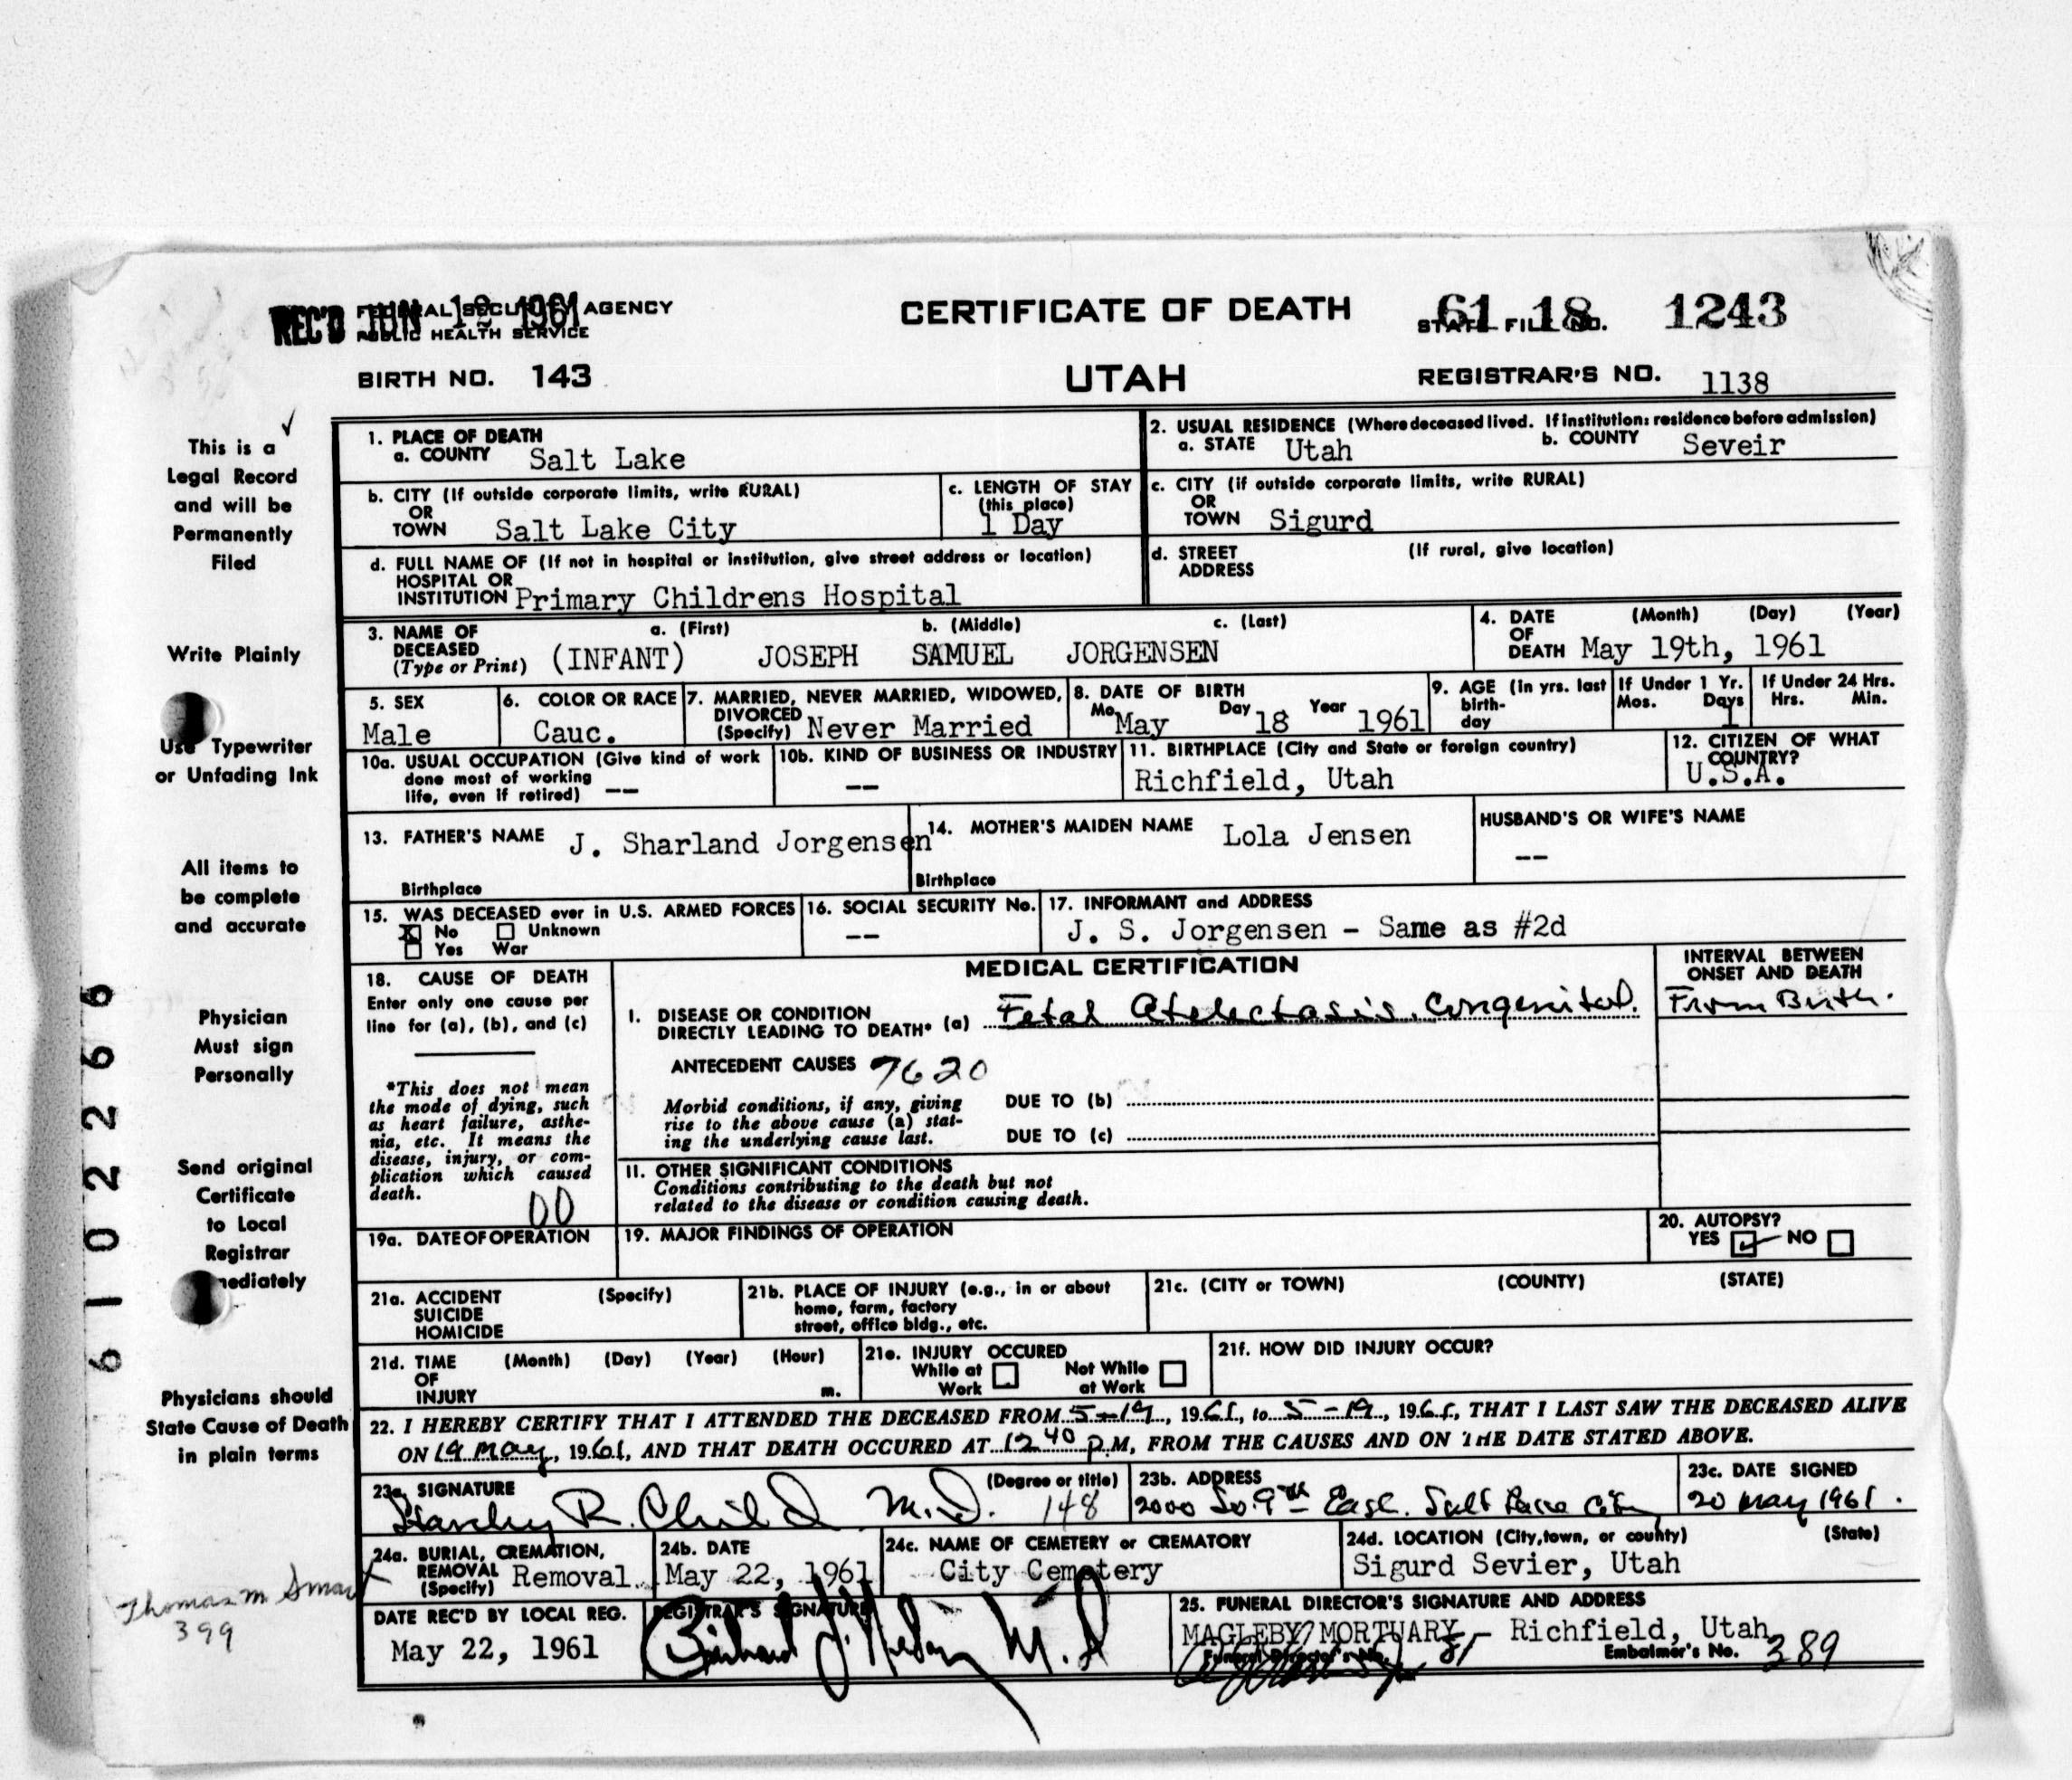 REC'D JUN 12 1961 FEDERAL SECURITY AGENCY
PUBLIC HEALTH SERVICE
CERTIFICATE OF DEATH
STATE FILE NO. 61 18 1243
BIRTH NO. 143
UTAH
REGISTRAR'S NO. 1138
This is a
Legal Record
and will be
Permanently
Filed
Write Plainly
Use Typewriter
or Unfading Ink
All items to
be complete
and accurate
Physician
Must sign
Personally
Send original
Certificate
to Local
Registrar
mediately
Physicians should
State Cause of Death
in plain terms
6102266
1. PLACE OF DEATH
a. COUNTY Salt Lake
2. USUAL RESIDENCE (Where deceased lived. If institution: residence before admission)
a. STATE Utah b. COUNTY Seveir
b. CITY (If outside corporate limits, write RURAL)
OR
TOWN Salt Lake City
c. LENGTH OF STAY
(this place)
1 Day
c. CITY (if outside corporate limits, write RURAL)
OR
TOWN Sigurd
d. FULL NAME OF (If not in hospital or institution, give street address or location)
HOSPITAL OR
INSTITUTION Primary Childrens Hospital
d. STREET (If rural, give location)
ADDRESS
3. NAME OF a. (First) b. (Middle) c. (Last)
DECEASED
(Type or Print) (INFANT) JOSEPH SAMUEL JORGENSEN
4. DATE (Month) (Day) (Year)
OF
DEATH May 19th, 1961
5. SEX
Male
6. COLOR OR RACE
Cauc.
7. MARRIED, NEVER MARRIED, WIDOWED,
DIVORCED
(Specify) Never Married
8. DATE OF BIRTH
Mo. May Day 18 Year 1961
9. AGE (in yrs. last
birth-
day
If Under 1 Yr.
Mos. Days
1
If Under 24 Hrs.
Hrs. Min.
10a. USUAL OCCUPATION (Give kind of work
done most of working
life, even if retired) --
10b. KIND OF BUSINESS OR INDUSTRY
--
11. BIRTHPLACE (City and State or foreign country)
Richfield, Utah
12. CITIZEN OF WHAT
COUNTRY?
U.S.A.
13. FATHER'S NAME J. Sharland Jorgensen
Birthplace
14. MOTHER'S MAIDEN NAME Lola Jensen
Birthplace
HUSBAND'S OR WIFE'S NAME
--
15. WAS DECEASED ever in U.S. ARMED FORCES
X No Unknown
Yes War
16. SOCIAL SECURITY No.
--
17. INFORMANT and ADDRESS
J. S. Jorgensen - Same as #2d
18. CAUSE OF DEATH
Enter only one cause per
line for (a), (b), and (c)
*This does not mean
the mode of dying, such
as heart failure, asthe-
nia, etc. It means the
disease, injury, or com-
plication which caused
death.
00
MEDICAL CERTIFICATION
INTERVAL BETWEEN
ONSET AND DEATH
I. DISEASE OR CONDITION
DIRECTLY LEADING TO DEATH* (a) Fetal Atelectasis. Congenital. From Birth.
ANTECEDENT CAUSES 7620
Morbid conditions, if any, giving
rise to the above cause (a) stat-
ing the underlying cause last.
DUE TO (b)
DUE TO (c)
II. OTHER SIGNIFICANT CONDITIONS
Conditions contributing to the death but not
related to the disease or condition causing death.
19a. DATE OF OPERATION
19. MAJOR FINDINGS OF OPERATION
20. AUTOPSY?
YES ✓ NO
21a. ACCIDENT (Specify)
SUICIDE
HOMICIDE
21b. PLACE OF INJURY (e.g., in or about
home, farm, factory
street, office bldg., etc.
21c. (CITY or TOWN) (COUNTY) (STATE)
21d. TIME (Month) (Day) (Year) (Hour)
OF
INJURY m.
21e. INJURY OCCURED
While at Not While
Work at Work
21f. HOW DID INJURY OCCUR?
22. I HEREBY CERTIFY THAT I ATTENDED THE DECEASED FROM 5-19, 1961, to 5-19, 1961, THAT I LAST SAW THE DECEASED ALIVE
ON 19 May, 1961, AND THAT DEATH OCCURED AT 12 40 P.M, FROM THE CAUSES AND ON THE DATE STATED ABOVE.
23a. SIGNATURE (Degree or title)
R. Child M.D. 148
23b. ADDRESS
2000 So. 9th East. Salt Lake City
23c. DATE SIGNED
20 May 1961.
24a. BURIAL, CREMATION,
REMOVAL
(Specify) Removal
24b. DATE
May 22, 1961
24c. NAME OF CEMETERY or CREMATORY
City Cemetery
24d. LOCATION (City, town, or county) (State)
Sigurd Sevier, Utah
Thomas M Smart
399
DATE REC'D BY LOCAL REG.
May 22, 1961
REGISTRAR'S SIGNATURE
M.D
25. FUNERAL DIRECTOR'S SIGNATURE AND ADDRESS
MAGLEBY MORTUARY - Richfield, Utah
Funeral Director's No. 81 Embalmer's No. 389